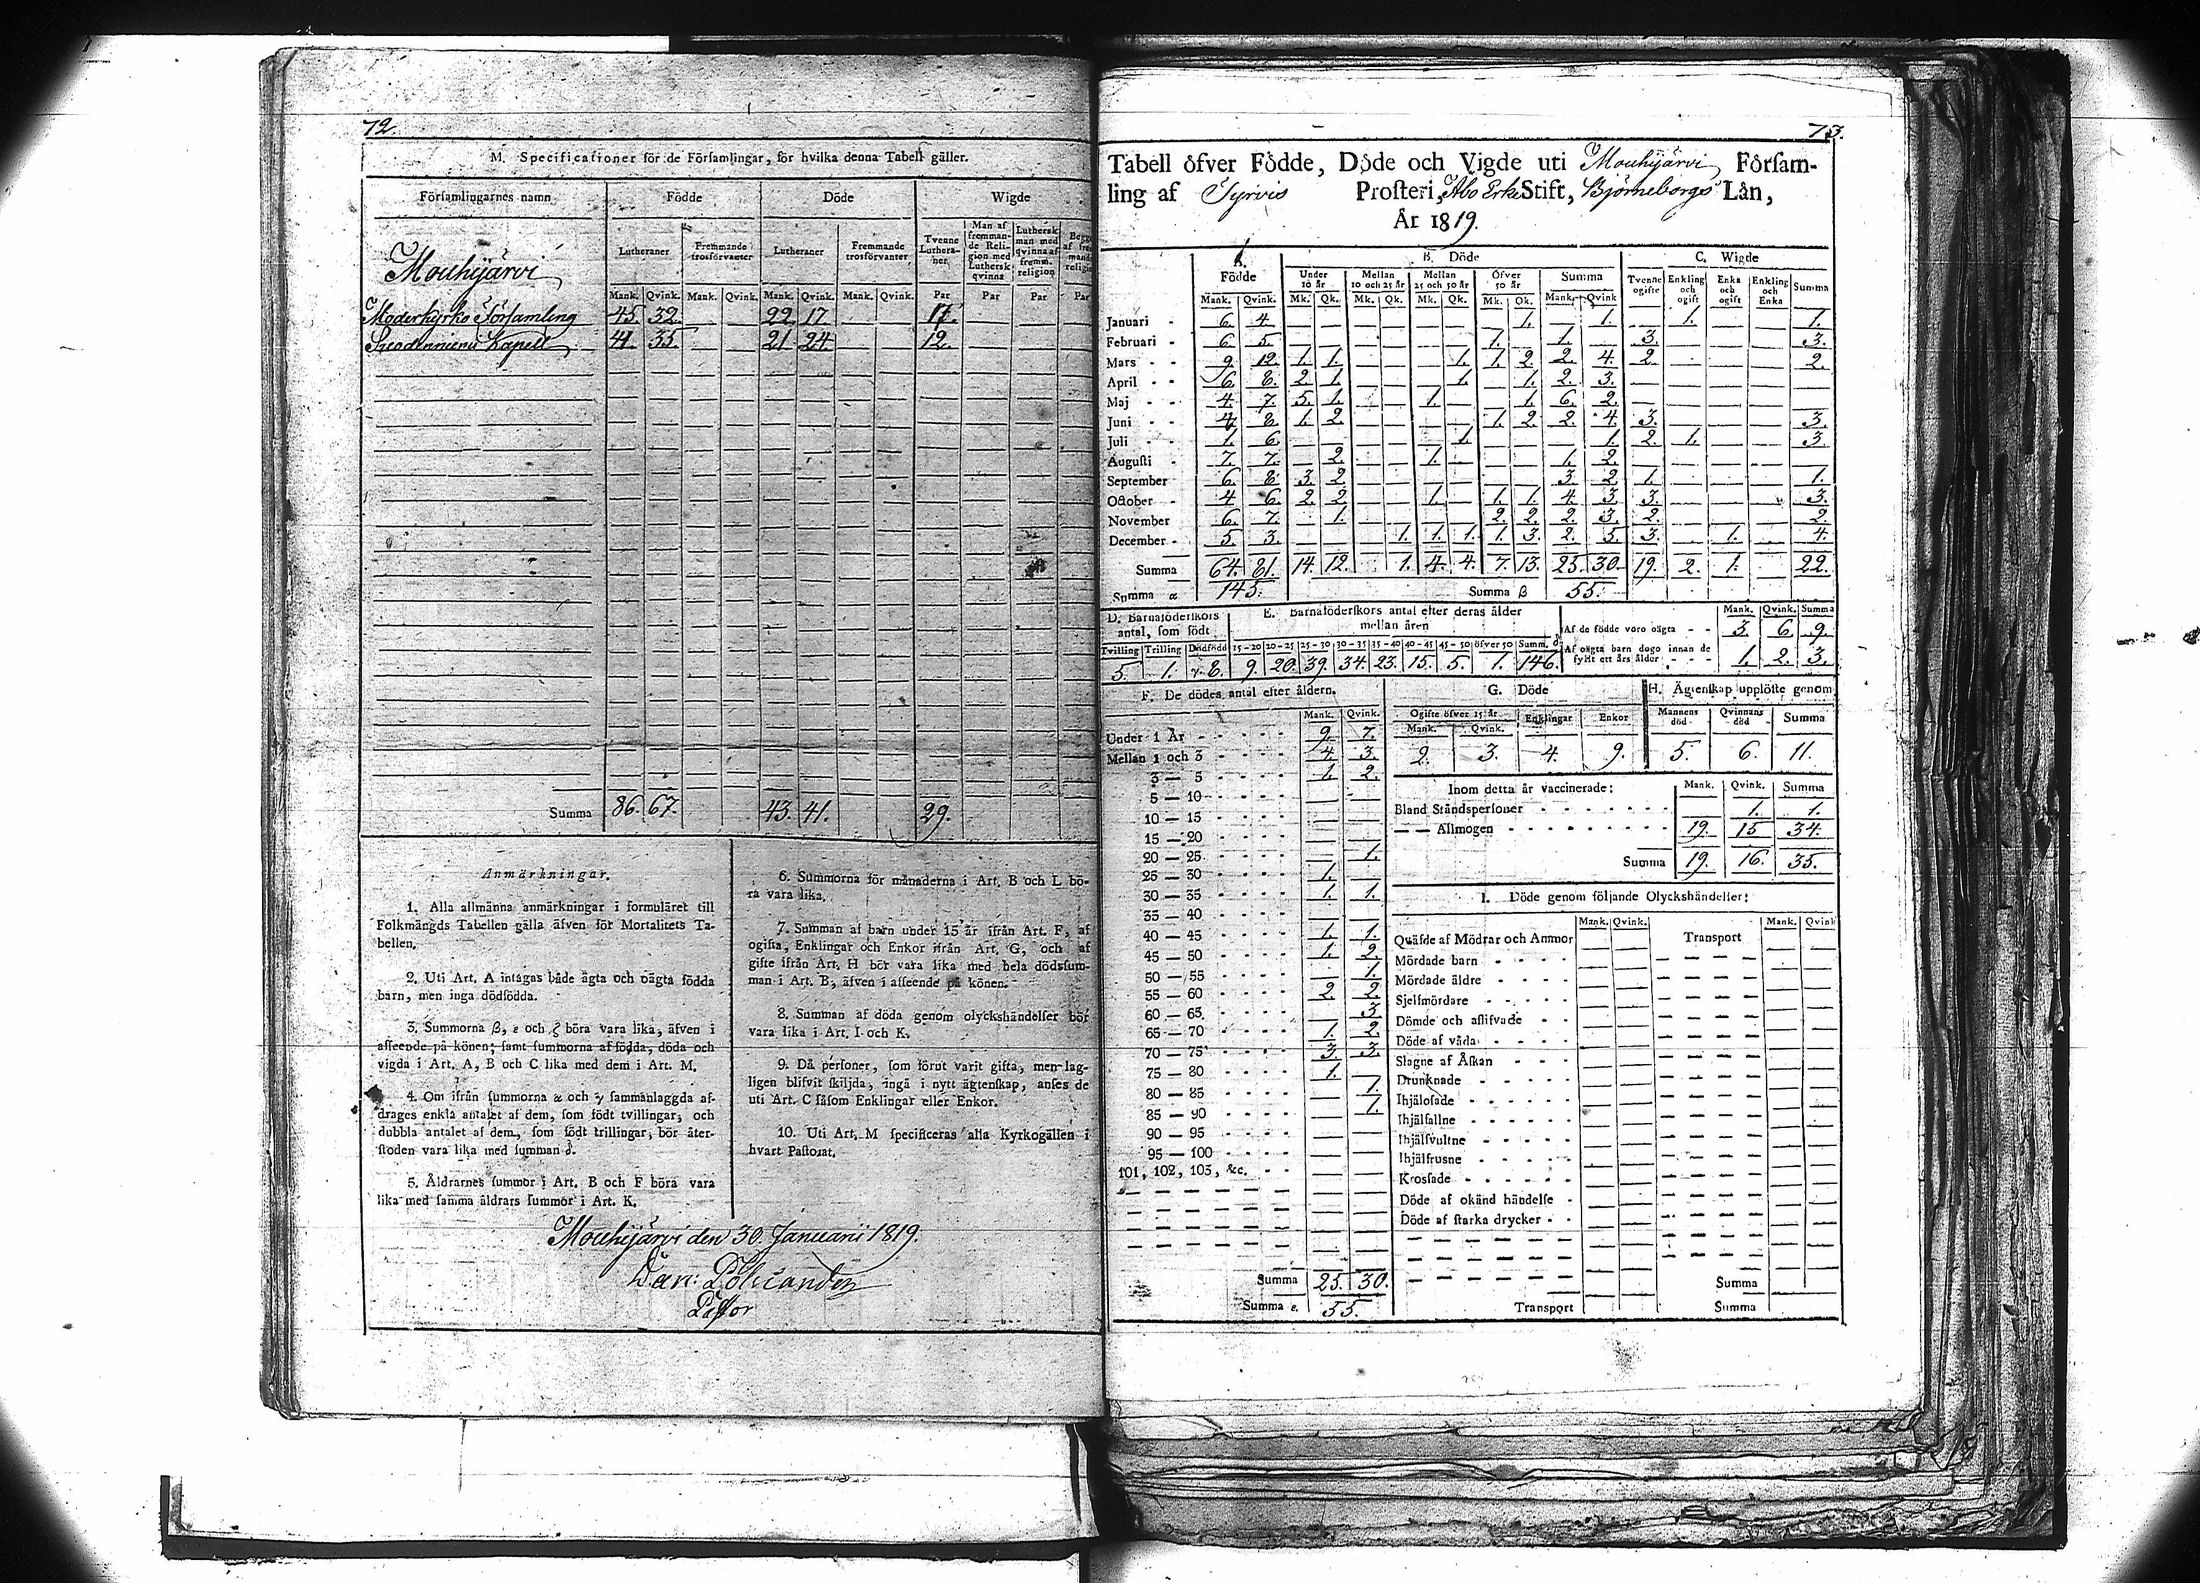 72.
M. Specificationer för de Församlingar, för hvilka denna Tabell gäller.
Församlingarnes namn Födde Döde Wigde
Lutheraner Fremmande trosförvanter Lutheraner Fremmande trosförvanter Tvenne Lutheraner Man af fremmande Religion med Luthersk qvinna Luthersk man med qvinna af fremm. religion
Mouhijärvi
Mank. Qvink. Mank. Qvink. Mank. Qvink. Mank. Qvink. Par Par Par Par
Moderkyrko Församling 45 32 22 17 17.
Kapell 41 35 21 24 12.
Summa 86. 67. 43. 41. 29.
Anmärkningar.
1. Alla allmänna anmärkningar i formuläret till
Folkmängds Tabellen gälla äfven för Mortalitets Ta-
bellen.
2. Uti Art. A intagas både ägta och oägta födda
barn, men inga dödfödda.
3. Summorna β, ε och ζ böra vara lika, äfven i
afseende på könen; samt summorna af födda, döda och
vigda i Art. A, B och C lika med dem i Art. M.
4. Om ifrån summorna α och γ sammanlaggda af-
drages enkla antalet af dem, som födt tvillingar, och
dubbla antalet af dem, som födt trillingar, bör åter-
stoden vara lika med summan δ.
5. Åldrarnes summor i Art. B och F böra vara
lika med samma åldrars summor i Art. K.
6. Summorna för månaderna i Art. B och L bö-
ra vara lika.
7. Summan af barn under 15 år ifrån Art. F, af
ogifta, Enklingar och Enkor ifrån Art. G, och af
gifte ifrån Art. H bör vara lika med hela dödssum-
man i Art. B, äfven i afseende på könen.
8. Summan af döda genom olyckshändelser bör
vara lika i Art. I och K.
9. Då personer, som förut varit gifta, men lag-
ligen blifvit skiljda, ingå i nytt ägtenskap, anses de
uti Art. C såsom Enklingar eller Enkor.
10. Uti Art. M specificeras alla Kyrkogällen i
hvart Pastorat.
Mouhijärvi den 30. Januarii 1819.
Dan: Pölicander
Pastor
73.
Tabell öfver Födde, Döde och Vigde uti Mouhijärvi Församling
af Tyrvis Prosteri, Åbo Erke Stift, Björneborgs Län,
År 1819.
A. Födde B. Döde C. Wigde
Under 10 år Mellan 10 och 25 år Mellan 25 och 50 år Öfver 50 år Summa Tvenne ogifte Enkling och ogift Enka och ogift Enkling och Enka Summa
Mank. Qvink. Mk. Qk. Mk. Qk. Mk. Qk. Mk. Qk. Mank. Qvink
Januari 6. 4. 1. 1. 1. 1.
Februari 6. 5. 1. 1. 3. 3.
Mars 9. 12. 1. 1. 1. 1. 2. 2. 4. 2. 2.
April 6. 8. 2. 1. 1. 1. 2. 3.
Maj 4. 7. 5. 1. 1. 1. 6. 2.
Juni 4. 8. 1. 2. 1. 2. 2. 4. 3. 3.
Juli 1. 6. 1. 1. 2. 1. 3.
Augusti 7. 7. 2. 1. 1. 2.
September 6. 8. 3. 2. 3. 2. 1. 1.
October 4 6. 2. 2. 1. 1. 1. 4. 3. 3. 3.
November 6. 7. 1. 2. 2. 2. 3. 2. 2.
December 5. 3. 1. 1. 1. 1. 3. 2. 5. 3. 1. 4.
Summa 64. 81. 14. 12. 1. 4. 4. 7. 13. 25. 30. 19. 2. 1. 22.
Summa α 145. Summa β 55.
D. Barnaföderskors antal, som födt
Tvilling Trilling Dödfödd
5. 1. γ 8.
E. Barnaföderskors antal efter deras ålder mellan åren
15-20 20-25 25-30 30-35 35-40 40-45 45-50 öfver 50 Summ. δ
9. 20. 39. 34. 23. 15. 5. 1. 146.
Mank. Qvink. Summa
Af de födde voro oägta 3. 6. 9.
Af oägta barn dogo innan de fyllt ett års ålder 1. 2. 3.
F. De dödes antal efter åldern.
Mank. Qvink.
Under 1 År 9. 7.
Mellan 1 och 3 4. 3.
3 — 5 1. 2.
5 — 10
10 — 15
15 — 20
20 — 25 1.
25 — 30 1.
30 — 35 1. 1.
35 — 40
40 — 45 1. 1.
45 — 50 1. 2.
50 — 55 1.
55 — 60 2. 2.
60 — 65 3.
65 — 70 1. 2.
70 — 75 3. 3.
75 — 80 1.
80 — 85 1.
85 — 90 1.
90 — 95
95 — 100
101, 102, 103, &c.
Summa 25. 30.
Summa ε. 55.
G. Döde
Ogifte öfver 15 år Enklingar Enkor
Mank. Qvink.
2. 3. 4. 9.
H. Ägtenskap upplöste genom
Mannens död Qvinnans död Summa
5. 6. 11.
Inom detta år vaccinerade: Mank. Qvink. Summa
Bland Ståndspersoner 1. 1.
— — Allmogen 19. 15 34.
Summa 19. 16. 35.
I. Döde genom följande Olyckshändelser:
Mank. Qvink. Transport Mank. Qvink
Quäfde af Mödrar och Ammor
Mördade barn
Mördade äldre
Sjelfmördare
Dömde och aflifvade
Döde af våda
Slagne af Åskan
Drunknade
Ihjälosade
Ihjälfallne
Ihjälsvultne
Ihjälfrusne
Krossade
Döde af okänd händelse
Döde af starka drycker
Summa
Transport Summa